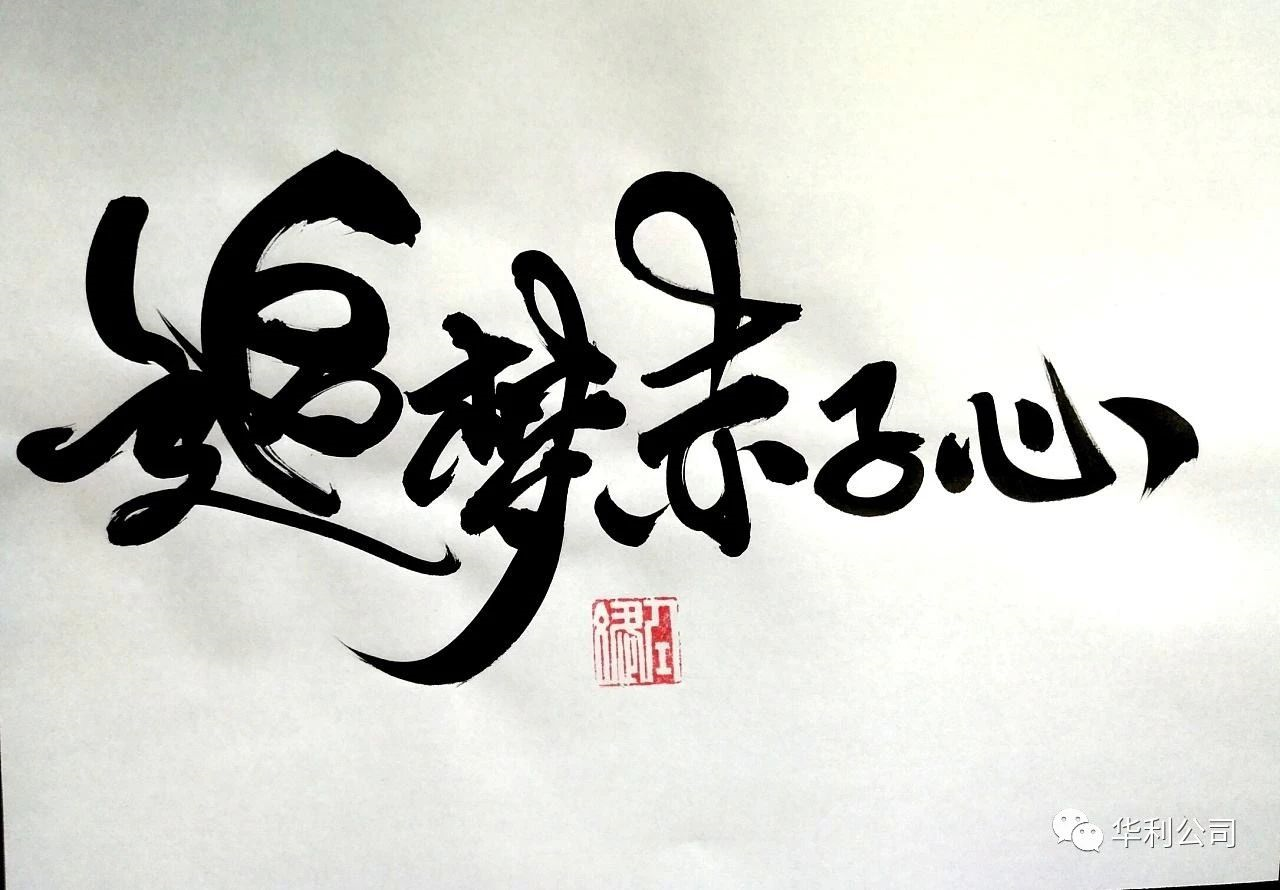 追梦赤子心
华利公司